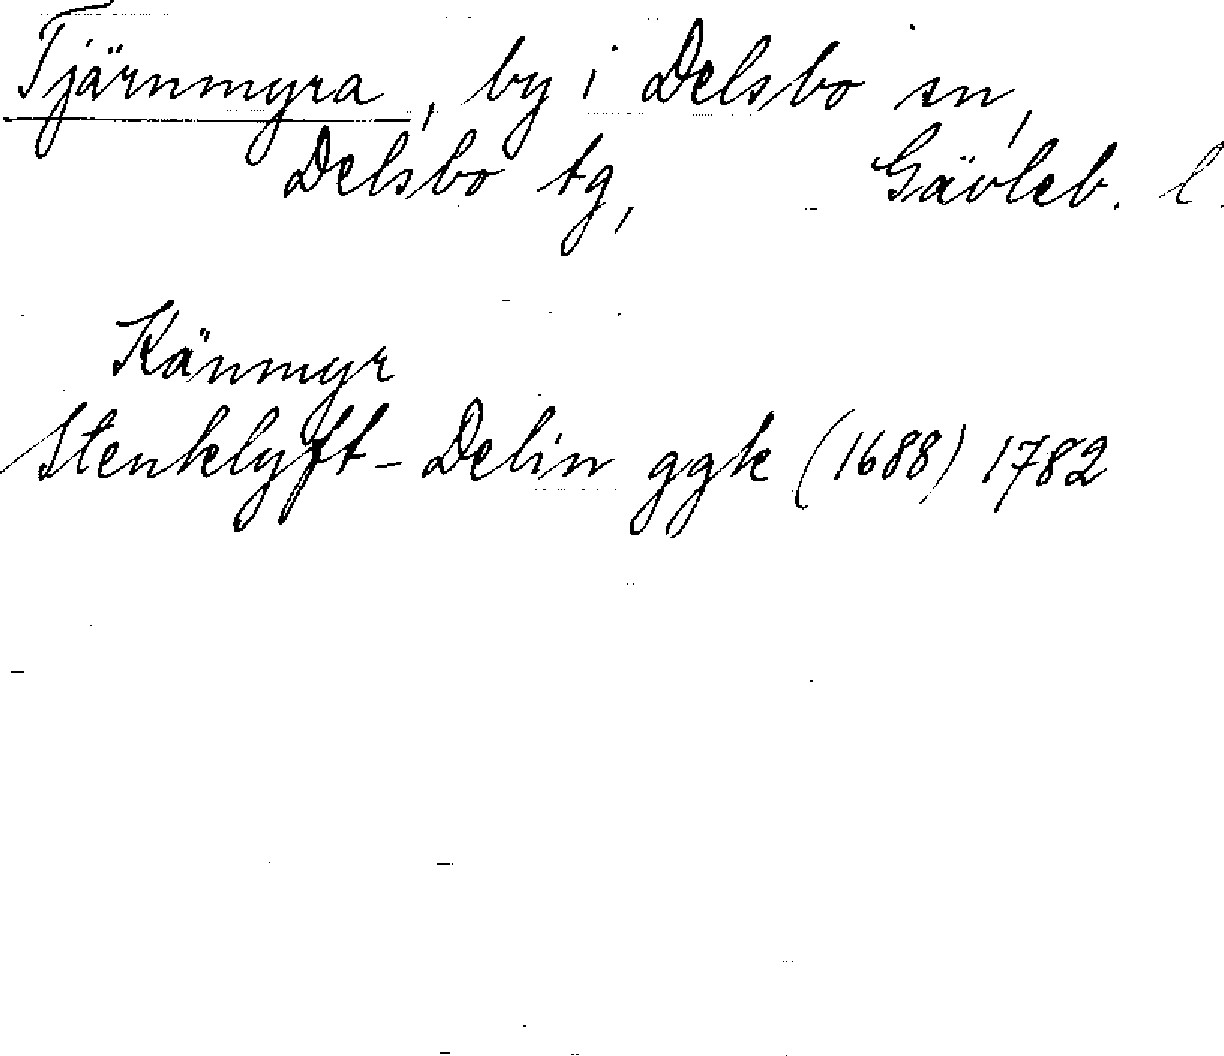 Tjärnmyra, by i Delsbo sn,
Delsbo tg, Gävleb. l.
Känmyr
Stenklyft - Delin ggk (1688) 1782